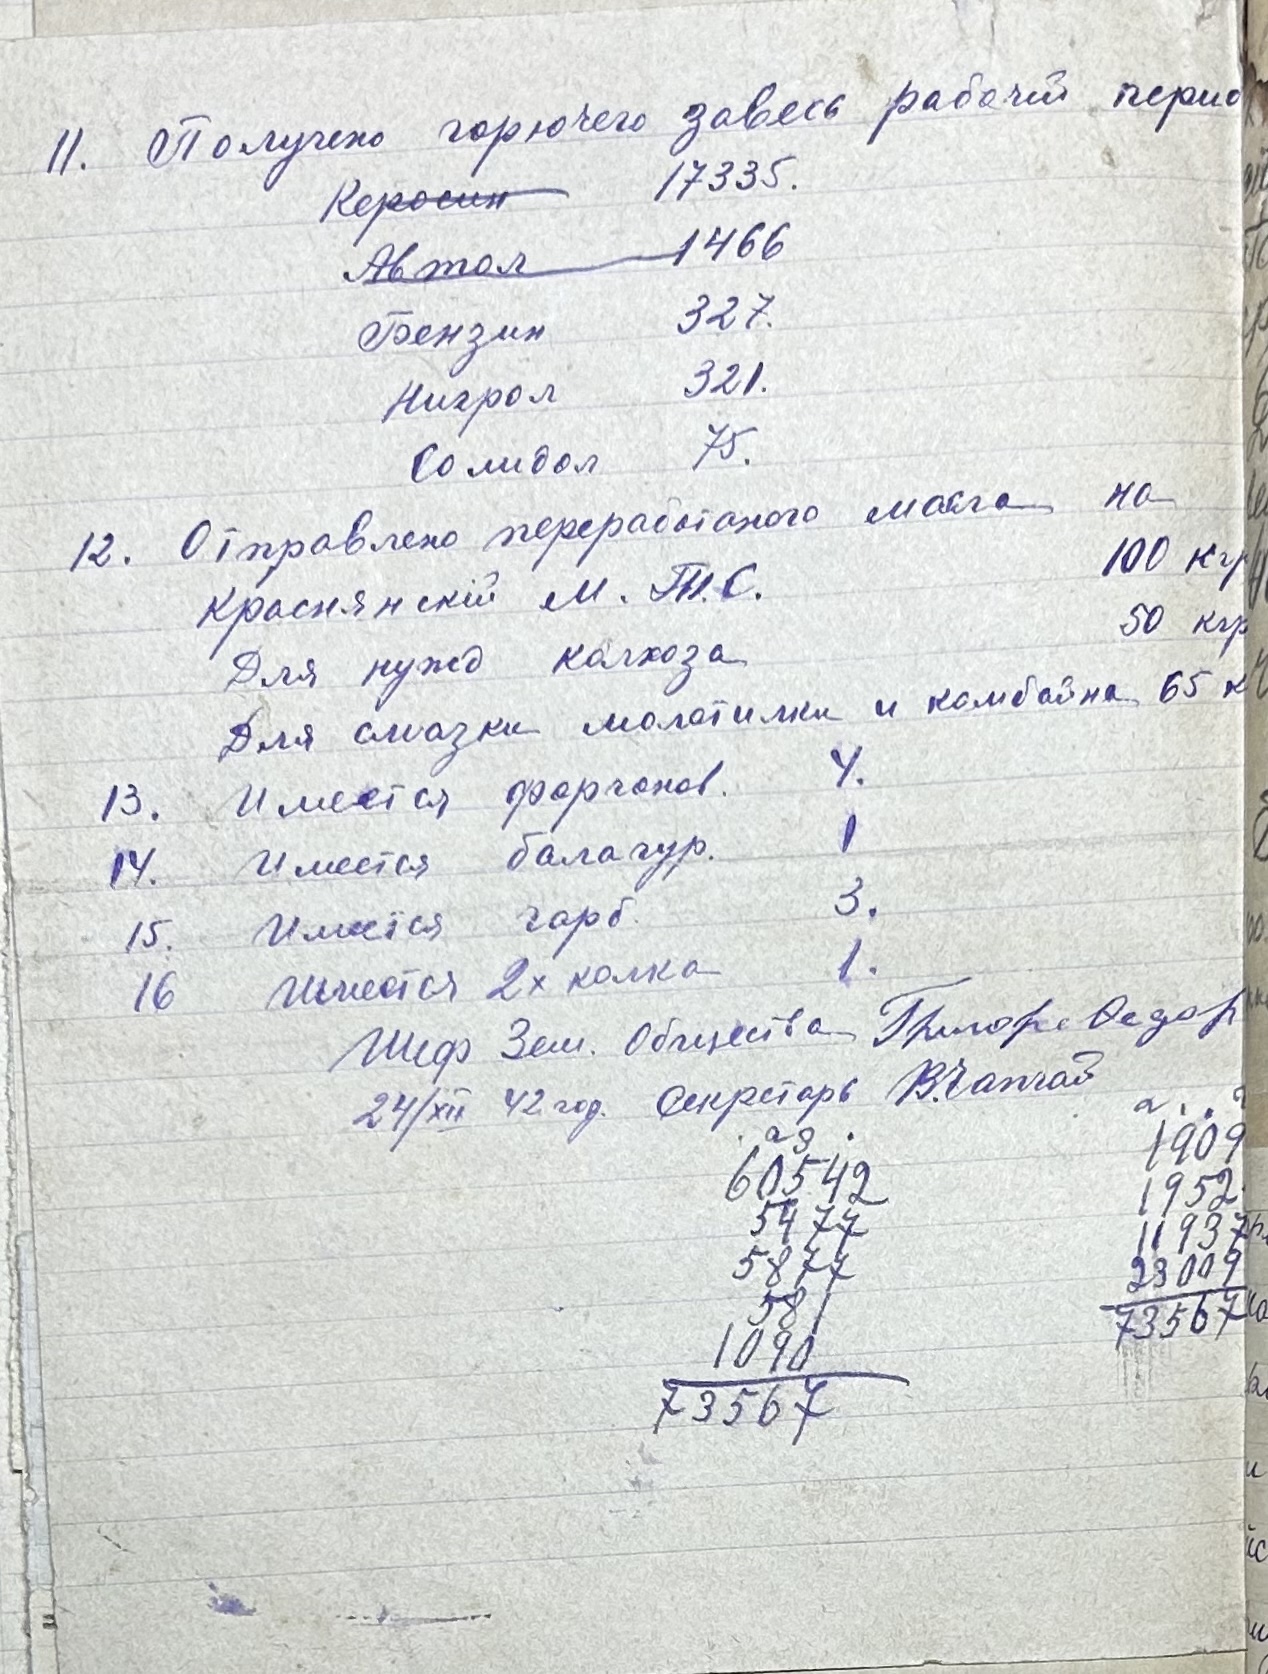 11. Получено горючего завесь рабочей перио
Керосин 17335.
Автол 1466
Бензин 327.
Нигрол 321.
Солидол 75.
12. Отправлено переработаного масла на
Краснянскій М.Т.С. 100 кгр
Для нужд колхоза 50 кгр
Для смазки молотилки и комбайна 65 к
13. Имеется фургонов. 4.
14. Имеется балагур. 1
15. Имеется гарб. 3.
16 Имеется 2х колка 1.
Шеф Зем. Общества
24/XII 42 год. Секретарь
60542
5477
5877
581
1090
73567
1909
1952.
11937
23009
73567